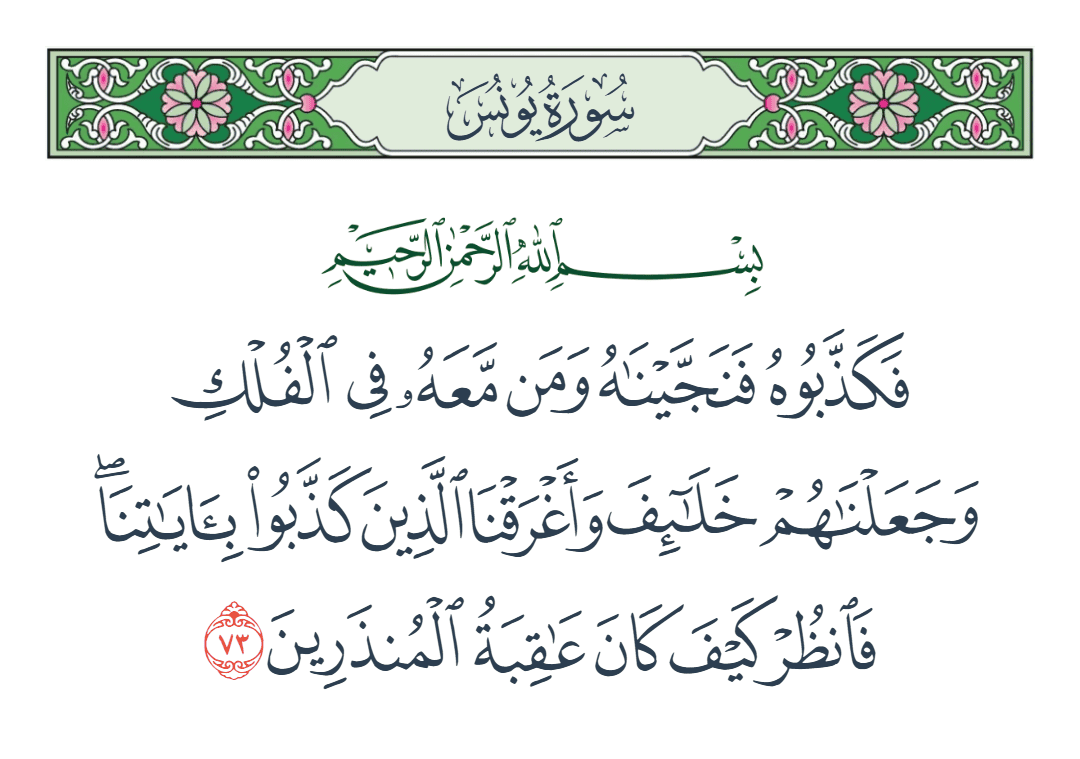 سُورَةُ يُونُسَ
بِسْمِ ٱللَّهِ ٱلرَّحْمَٰنِ ٱلرَّحِيمِ
فَكَذَّبُوهُ فَنَجَّيْنَٰهُ وَمَن مَّعَهُۥ فِى ٱلْفُلْكِ
وَجَعَلْنَٰهُمْ خَلَٰٓئِفَ وَأَغْرَقْنَا ٱلَّذِينَ كَذَّبُوا۟ بِـَٔايَٰتِنَا ۖ
فَٱنظُرْ كَيْفَ كَانَ عَٰقِبَةُ ٱلْمُنذَرِينَ ٧٣